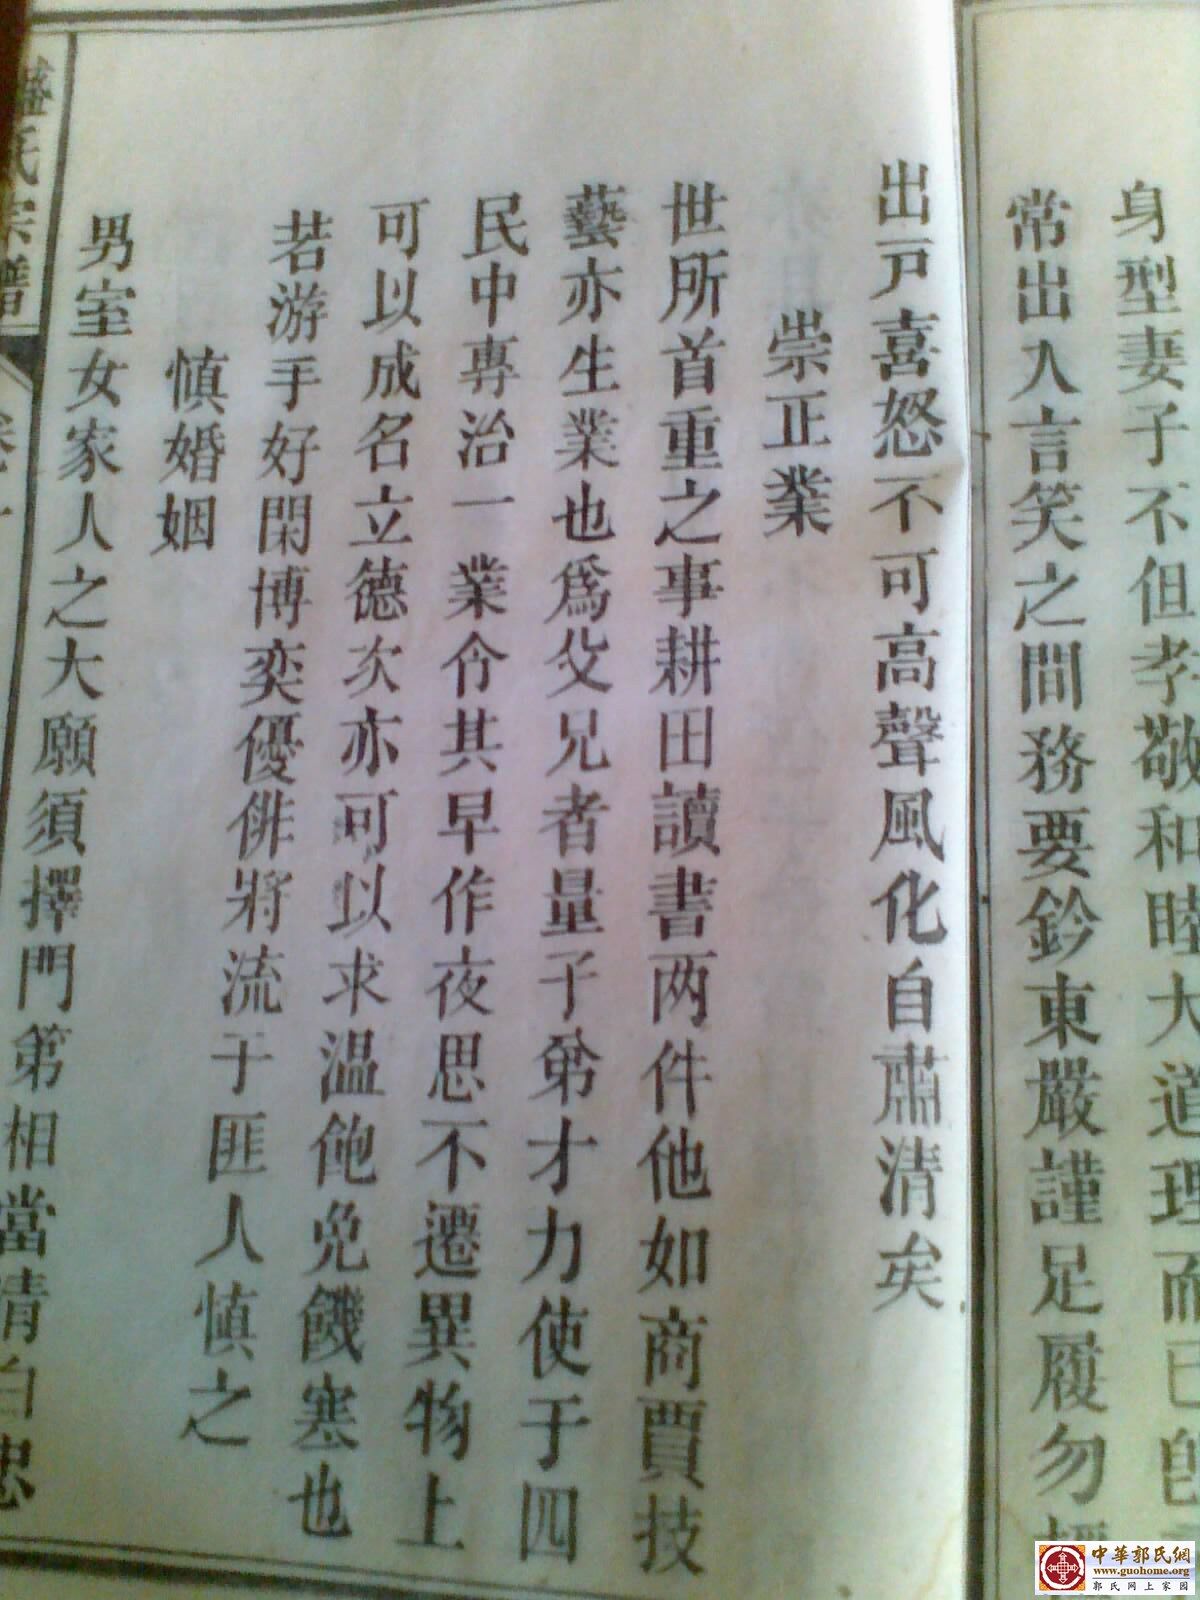 身型妻子不但孝敬和睦大道理而已
常出入言笑之間務要鈐東嚴謹足履勿輕
出戸喜怒不可高聲風化自肅清矣
崇正業
世所首重之事耕田讀書两件他如商賈技
藝亦生業也爲父兄者量子弟才力使于四
民中專治一業令其早作夜思不遷異物上
可以成名立德次亦可以求温飽免饑寒也
若游手好閑博奕優俳將流于匪人慎之
慎婚姻
男室女家人之大願須擇門第相當清白忠
氏宗譜
中華郭氏網
www.guohome.org
郭氏网上家园